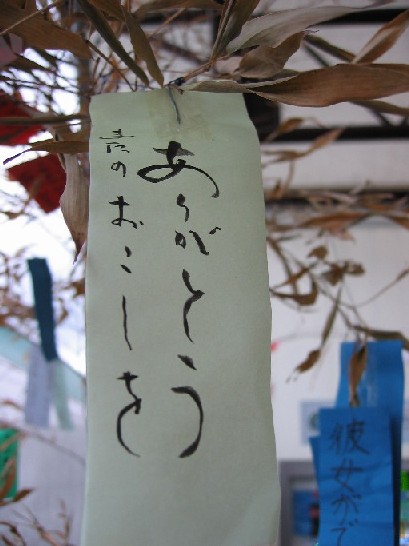 ありがとう
またのおこしを
彼女がで